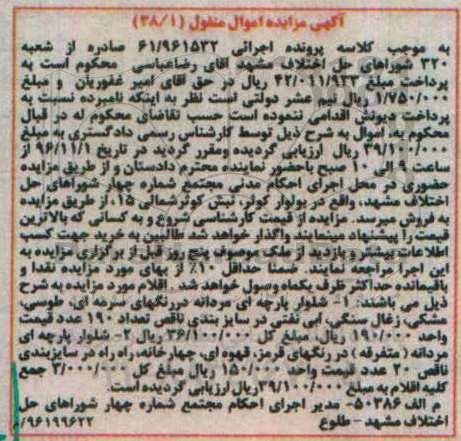 آگهی مزایده اموال منقول (۳۸/۱)
به موجب کلاسه پرونده اجرائی ۶۱/۹۶۱۵۳۲ صادره از شعبه
۳۲۰ شوراهای حل اختلاف مشهد آقای رضاعباسی محکوم است به
پرداخت مبلغ ۴۲/۰۱۱/۹۳۳ ریال در حق آقای امیر غفوریان و مبلغ
۱/۷۵۰/۰۰۰ ریال نیم عشر دولتی است نظر به اینکه نامبرده نسبت به
پرداخت دیونش اقدامی ننموده است حسب تقاضای محکوم له در قبال
محکوم به، اموال به شرح ذیل توسط کارشناس رسمی دادگستری به مبلغ
۳۹/۱۰۰/۰۰۰ ریال ارزیابی گردیده ومقرر گردید در تاریخ ۹۶/۱۱/۱ از
ساعت ۹ الی ۱۰ صبح باحضور نماینده محترم دادستان و از طریق مزایده
حضوری در محل اجرای احکام مدنی مجتمع شماره چهار شوراهای حل
اختلاف مشهد، واقع در بولوار کوثر، نبش کوثرشمالی ۱۵، از طریق مزایده
به فروش میرسد. مزایده از قیمت کارشناسی شروع و به کسانی که بالاترین
قیمت را پیشنهاد مینمایند واگذار خواهد شد طالبین به خرید جهت کسب
اطلاعات بیشتر و بازدید از ملک موصوف پنج روز قبل از برگزاری مزایده به
این اجرا مراجعه نمایند. ضمنا حداقل ۱۰٪ از بهای مورد مزایده نقدا و
باقیمانده حداکثر ظرف یکماه وصول خواهد شد. اقلام مورد مزایده به شرح
ذیل می باشند: ۱- شلوار پارچه ای مردانه دررنگهای سرمه ای، طوسی،
مشکی، زغال سنگی، آبی نفتی در سایز بندی ناقص تعداد ۱۹۰ عدد قیمت
واحد ۱۹۰/۰۰۰ ریال، مبلغ کل ۳۶/۱۰۰/۰۰۰ ریال ۲- شلوار پارچه ای
مردانه (متفرقه) در رنگهای قرمز، قهوه ای، چهارخانه، راه راه در سایزبندی
ناقص ۲۰ عدد قیمت واحد ۱۵۰/۰۰۰ ریال مبلغ کل ۳/۰۰۰/۰۰۰ جمع
کلیه اقلام به مبلغ ۳۹/۱۰۰/۰۰۰ریال ارزیابی گردیده است.
م الف ۵۰۳۸۶- مدیر اجرای احکام مجتمع شماره چهار شوراهای حل
اختلاف مشهد - طلوع ۹۶۱۹۹۶۲۲/م